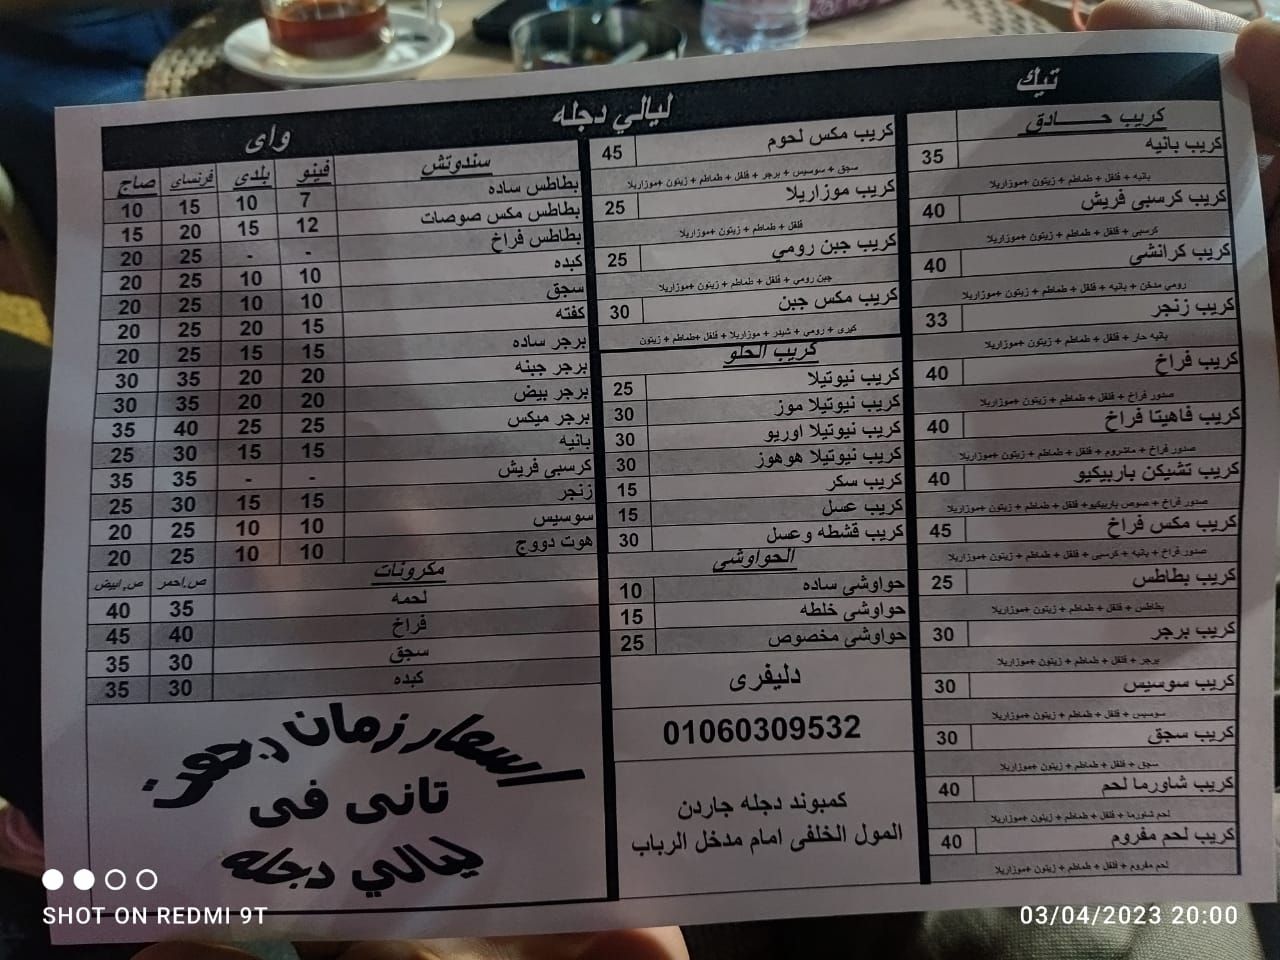 تيك ليالي دجله واى
كريب حــــادق
كريب بانيه 35
بانيه + فلفل + طماطم + زيتون +موزاريلا
كريب كرسبى فريش 40
كرسبى + فلفل + طماطم + زيتون +موزاريلا
كريب كرانشى 40
رومي مدخن + بانيه + فلفل + طماطم + زيتون +موزاريلا
كريب زنجر 33
بانيه حار + فلفل + طماطم + زيتون +موزاريلا
كريب فراخ 40
صدور فراخ + فلفل + طماطم + زيتون +موزاريلا
كريب فاهيتا فراخ 40
صدور فراخ + ماشروم + فلفل + طماطم + زيتون +موزاريلا
كريب تشيكن باربيكيو 40
صدور فراخ + صوص باربيكيو+ فلفل + طماطم + زيتون +موزاريلا
كريب مكس فراخ 45
صدور فراخ + بانيه + كرسبى + فلفل + طماطم + زيتون +موزاريلا
كريب بطاطس 25
بطاطس + فلفل + طماطم + زيتون +موزاريلا
كريب برجر 30
برجر + فلفل + طماطم + زيتون +موزاريلا
كريب سوسيس 30
سوسيس + فلفل + طماطم + زيتون +موزاريلا
كريب سجق 30
سجق + فلفل + طماطم + زيتون +موزاريلا
كريب شاورما لحم 40
لحم شاورما + فلفل + طماطم + زيتون +موزاريلا
كريب لحم مفروم 40
لحم مفروم + فلفل + طماطم + زيتون +موزاريلا
كريب مكس لحوم 45
سجق + سوسيس + برجر + فلفل + طماطم + زيتون +موزاريلا
كريب موزاريلا 25
فلفل + طماطم + زيتون +موزاريلا
كريب جبن رومي 25
جبن رومي + فلفل + طماطم + زيتون +موزاريلا
كريب مكس جبن 30
كيرى + رومي + شيدر + موزاريلا + فلفل +طماطم + زيتون
كريب الحلو
كريب نيوتيلا 25
كريب نيوتيلا موز 30
كريب نيوتيلا اوريو 30
كريب نيوتيلا هوهوز 30
كريب سكر 15
كريب عسل 15
كريب قشطه وعسل 30
الحواوشى
حواوشى ساده 10
حواوشى خلطه 15
حواوشى مخصوص 25
دليفرى
01060309532
كمبوند دجله جاردن
المول الخلفى امام مدخل الرباب
سندوتش فينو بلدى فرنساي صاج
بطاطس ساده 7 10 15 10
بطاطس مكس صوصات 12 15 20 15
بطاطس فراخ - - 25 20
كبده 10 10 25 20
سجق 10 10 25 20
كفته 15 20 25 20
برجر ساده 15 15 25 20
برجر جبنه 20 20 35 30
برجر بيض 20 20 35 30
برجر ميكس 25 25 40 35
بانيه 15 15 30 25
كرسبى فريش - - 35 35
زنجر 15 15 30 25
سوسيس 10 10 25 20
هوت دووج 10 10 25 20
مكرونات ص.احمر ص.ابيض
لحمه 35 40
فراخ 40 45
سجق 30 35
كبده 30 35
اسعار زمان
تانى فى
ليالي دجله
SHOT ON REDMI 9T
03/04/2023 20:00